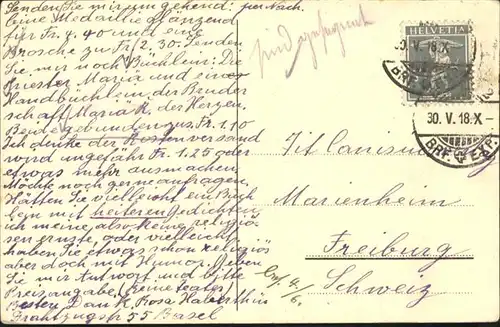 Senden Sie mir umgehend: per Nach.
Eine Medaille glänzend
für Fr. 4.40 und eine
Brosche zu Fr. 2.30. Senden
Sie mir noch Büchlein: Die
Priester Mariä und eine
Handbüchlein der Bruder
schaft Mariä K. der Herzen.
Beide gebunden zus. Fr. 1.10
Ich denke der Kostenversand
wird ungefähr Fr. 1.25 oder
etwas mehr ausmachen.
Möchte noch gerne anfragen.
Hätten Sie vielleicht ein Büch
lein mit heiteren Gedichten
ich meine also keine religiö-
sen ernste, oder vielleicht
haben Sie etwas schön religiös
aber doch mit Humor. Geben
Sie mir Antwort und bitte
Preisangabe (keine teates)
Besten Dank. Rosa Haberthür
55 Basel
sind
HELVETIA
30. V. 18. X-
BRF. EXP.
30. V. 18. X-
BRF. EXP.
Tit Canisiuswerk
Marienheim
Freiburg
Schweiz